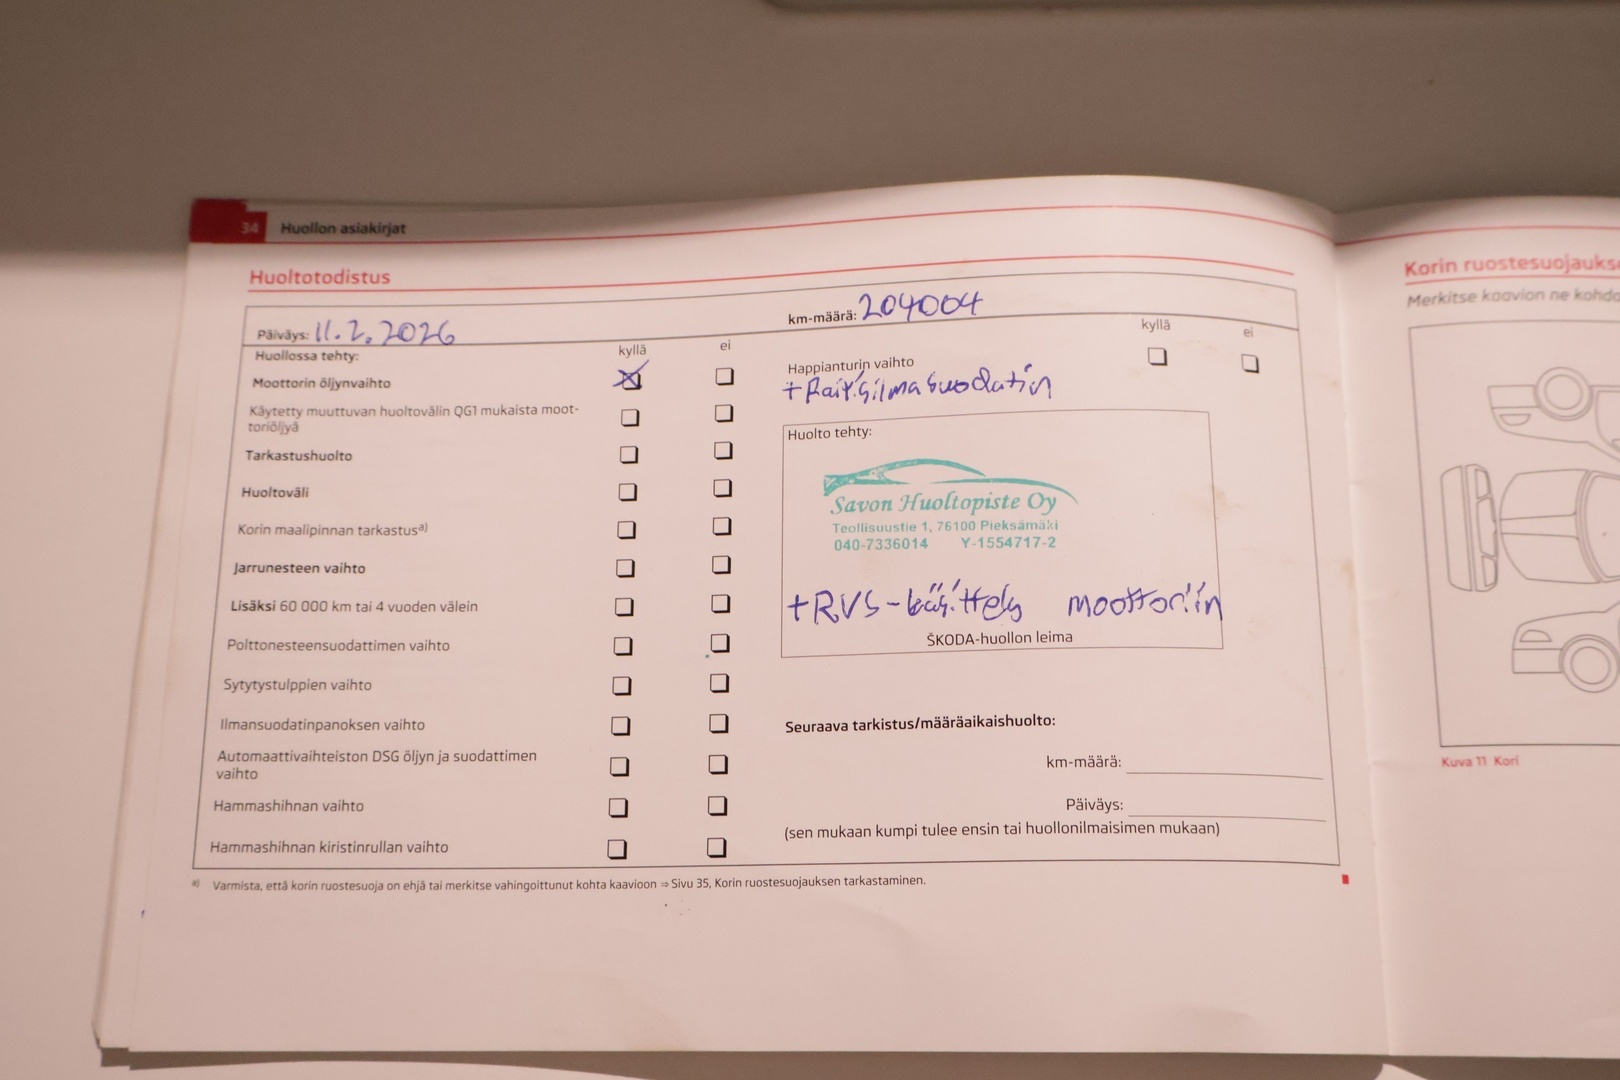 34 Huollon asiakirjat
Huoltotodistus
Päiväys: 11.2.2026
km-määrä: 204004
Huollossa tehty:
kyllä ei
Moottorin öljynvaihto
Käytetty muuttuvan huoltovälin QG1 mukaista moot-
toriöljyä
Tarkastushuolto
Huoltoväli
Korin maalipinnan tarkastusa)
Jarrunesteen vaihto
Lisäksi 60 000 km tai 4 vuoden välein
Polttonesteensuodattimen vaihto
Sytytystulppien vaihto
Ilmansuodatinpanoksen vaihto
Automaattivaihteiston DSG öljyn ja suodattimen
vaihto
Hammashihnan vaihto
Hammashihnan kiristinrullan vaihto
kyllä ei
Happianturin vaihto
+Raitisilmasuodatin
Huolto tehty:
Savon Huoltopiste Oy
Teollisuustie 1, 76100 Pieksämäki
040-7336014 Y-1554717-2
+RVS-käsittely moottoriin
ŠKODA-huollon leima
Seuraava tarkistus/määräaikaishuolto:
km-määrä:
Päiväys:
(sen mukaan kumpi tulee ensin tai huollonilmaisimen mukaan)
a) Varmista, että korin ruostesuoja on ehjä tai merkitse vahingoittunut kohta kaavioon ⇒ Sivu 35, Korin ruostesuojauksen tarkastaminen.
Korin ruostesuojaukse
Merkitse kaavion ne kohda
Kuva 11 Kori